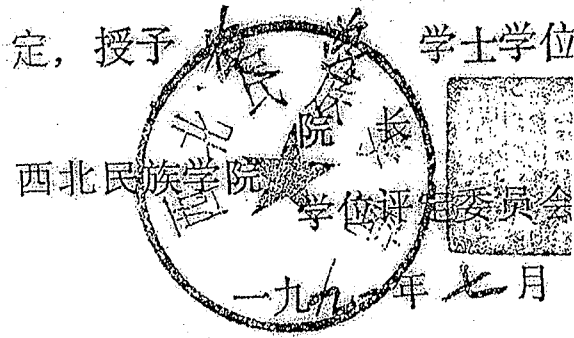 定，授予 学士学位
院 长
西北民族学院
学位评定委员会
一九九一年七月